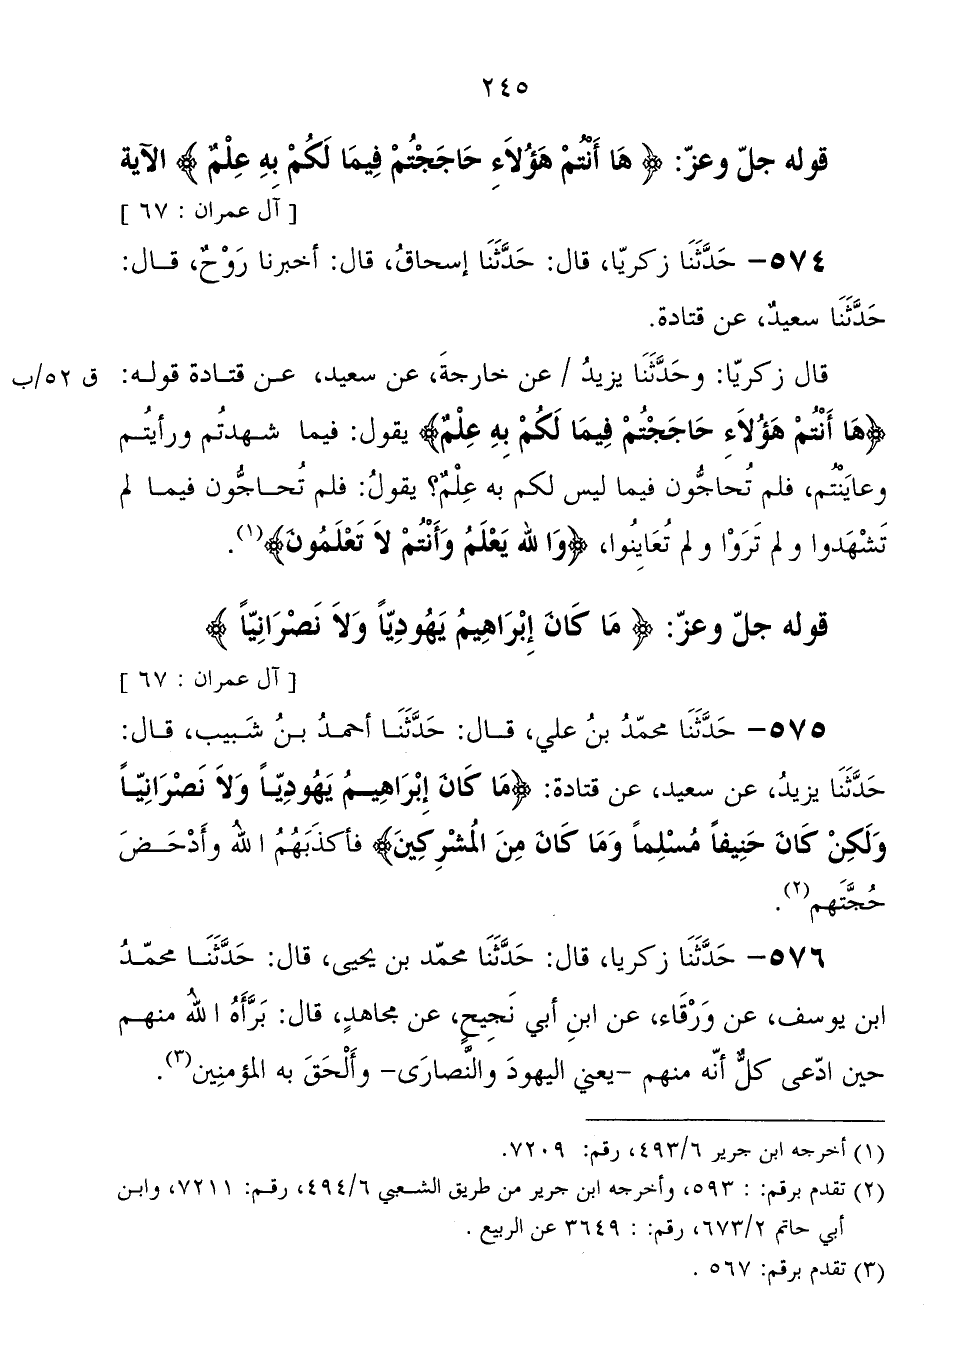 ٢٤٥
قوله جلّ وعزّ: ﴿ هَا أَنْتُمْ هَؤُلاَءِ حَاجَجْتُمْ فِيمَا لَكُمْ بِهِ عِلْمٌ ﴾ الآية
[ آل عمران : ٦٧ ]
٥٧٤- حَدَّثَنَا زكريّا، قال: حَدَّثَنَا إسحاقُ، قال: أخبرنا رَوْحٌ، قـال:
حَدَّثَنَا سعيدٌ، عن قتادة.
قال زكريّا: وحَدَّثَنَا يزيدُ / عن خارجةَ، عن سعيد، عـن قتـادة قولـه: ق ٥٢/ب
﴿هَا أَنْتُمْ هَؤُلاَءِ حَاجَجْتُمْ فِيمَا لَكُمْ بِهِ عِلْمٌ﴾ يقول: فيما شـهدتُم ورأيتُـم
وعايَنْتُم، فلم تُحاجُّون فيما ليس لكم به عِلْمٌ؟ يقولُ: فلم تُحـاجُّون فيمـا لم
تَشْهَدوا ولم تَرَوْا ولم تُعَايِنُوا، ﴿وَاللهُ يَعْلَمُ وَأَنْتُمْ لاَ تَعْلَمُونَ﴾(١).
قوله جلّ وعزّ: ﴿ مَا كَانَ إِبْرَاهِيمُ يَهُودِيّاً وَلاَ نَصْرَانِيّاً ﴾
[ آل عمران : ٦٧ ]
٥٧٥- حَدَّثَنَا محمّدُ بنُ علي، قـال: حَدَّثَنَـا أحمـدُ بـنُ شَبيب، قـال:
حَدَّثَنَا يزيدُ، عن سعيد، عن قتادة: ﴿مَا كَانَ إِبْرَاهِيـمُ يَهُودِيّـاً وَلاَ نَصْرَانِيّـاً
وَلَكِنْ كَانَ حَنِيفاً مُسْلِماً وَمَا كَانَ مِنَ الْمُشْرِكِينَ﴾ فأكذَبَهُمُ اللهُ وأَدْحَـضَ
حُجَّتَهم(٢).
٥٧٦- حَدَّثَنَا زكريا، قال: حَدَّثَنَا محمّد بن يحيى، قال: حَدَّثَنَـا محمّـدُ
ابن يوسف، عن وَرْقَاء، عن ابنِ أبي نَجِيحٍ، عن مجاهدٍ، قال: بَرَّأَهُ اللهُ منهـم
حين ادّعى كلٌّ أنّه منهم -يعني اليهودَ والنَّصارَى- وأَلْحَقَ به المؤمنِين(٣).
(١) أخرجه ابن جرير ٤٩٣/٦، رقم: ٧٢٠٩.
(٢) تقدم برقم: : ٥٩٣، وأخرجه ابن جرير من طريق الشـعبي ٤٩٤/٦، رقـم: ٧٢١١، وابـن
أبي حاتم ٦٧٣/٢، رقم: : ٣٦٤٩ عن الربيع .
(٣) تقدم برقم: ٥٦٧ .